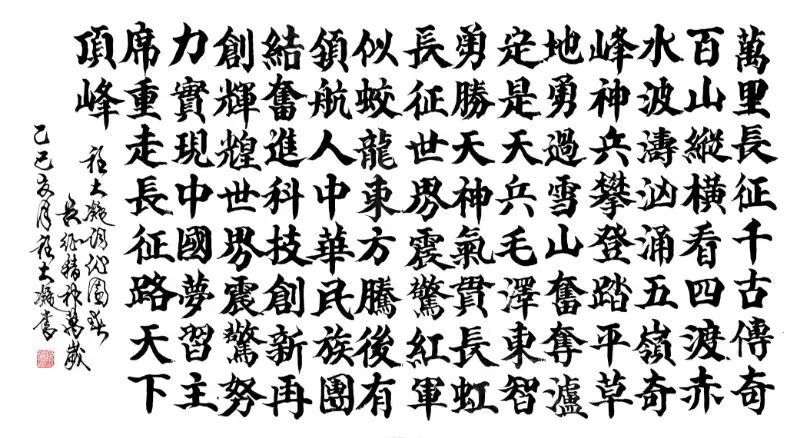 萬里長征千古傳奇
百山縱橫看四渡赤
水波濤洶涌五嶺奇
峰神兵攀登踏平草
地勇過雪山奮奪瀘
定是天兵毛澤東智
勇勝天神氣貫長虹
長征世界震驚紅軍
似蛟龍東方騰後有
領航人中華民族團
結奮進科技創新再
創輝煌世界震驚努
力實現中國夢習主
席重走長征路天下
頂峰
大凝詞沁園春
長征精神萬歲
乙巳月大凝書